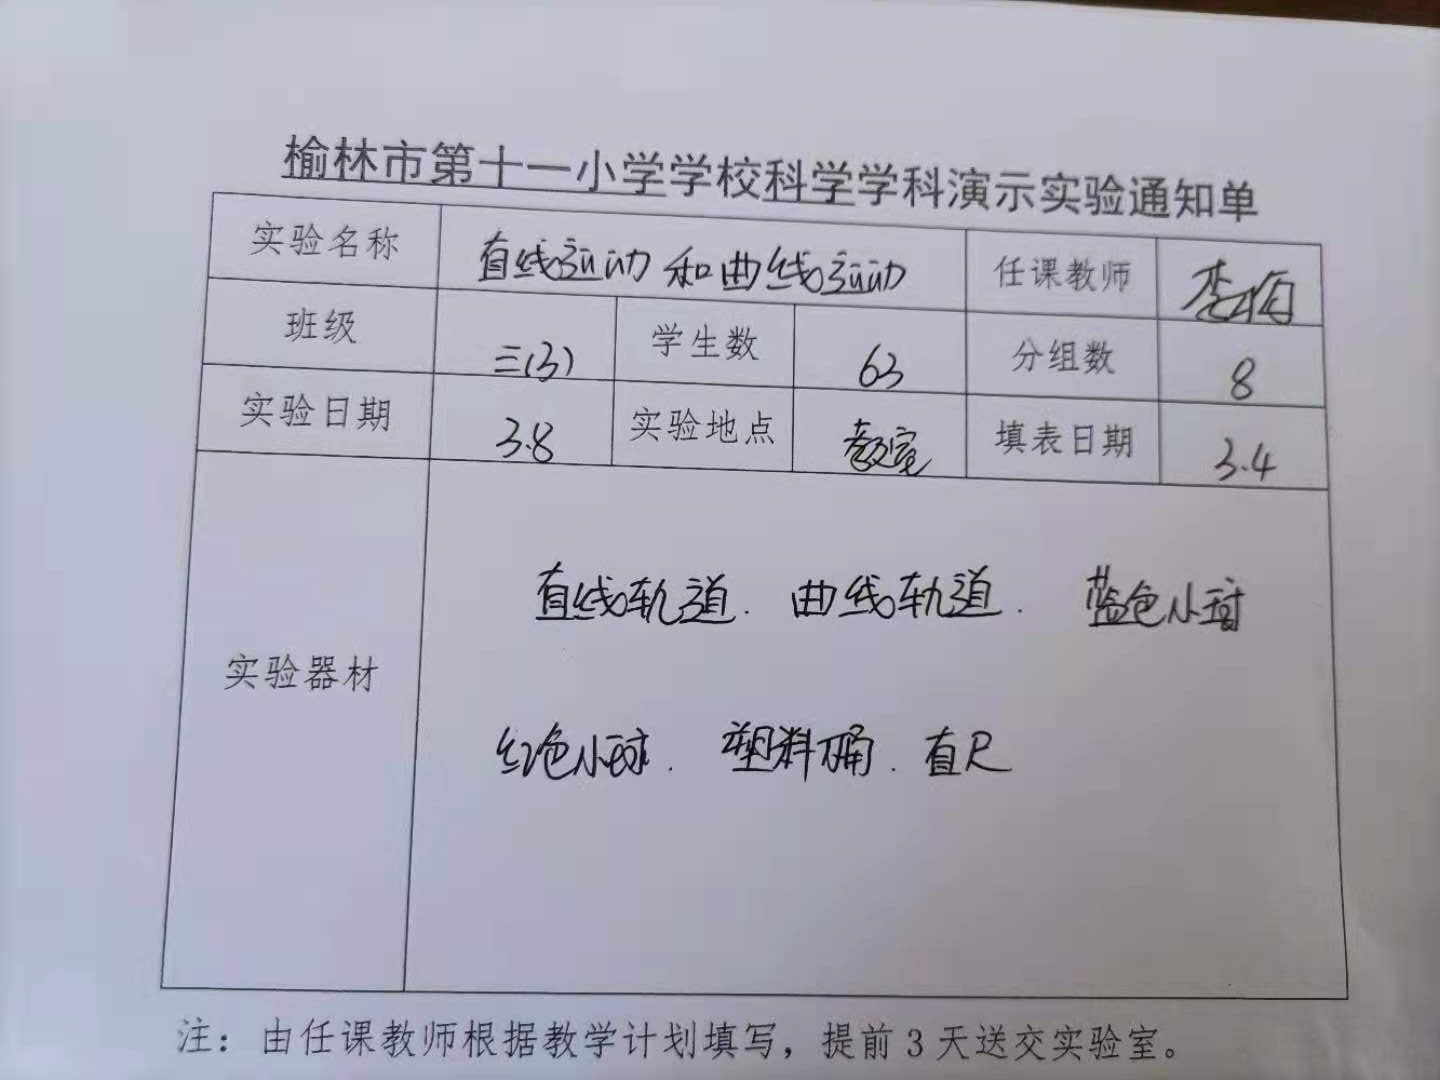 榆林市第十一小学学校科学学科演示实验通知单
实验名称 直线运动和曲线运动 任课教师 李梅
班级 三(3) 学生数 63 分组数 8
实验日期 3.8 实验地点 教室 填表日期 3.4
实验器材
直线轨道. 曲线轨道. 蓝色小球
红色小球. 塑料桶. 直尺
注：由任课教师根据教学计划填写，提前3天送交实验室。